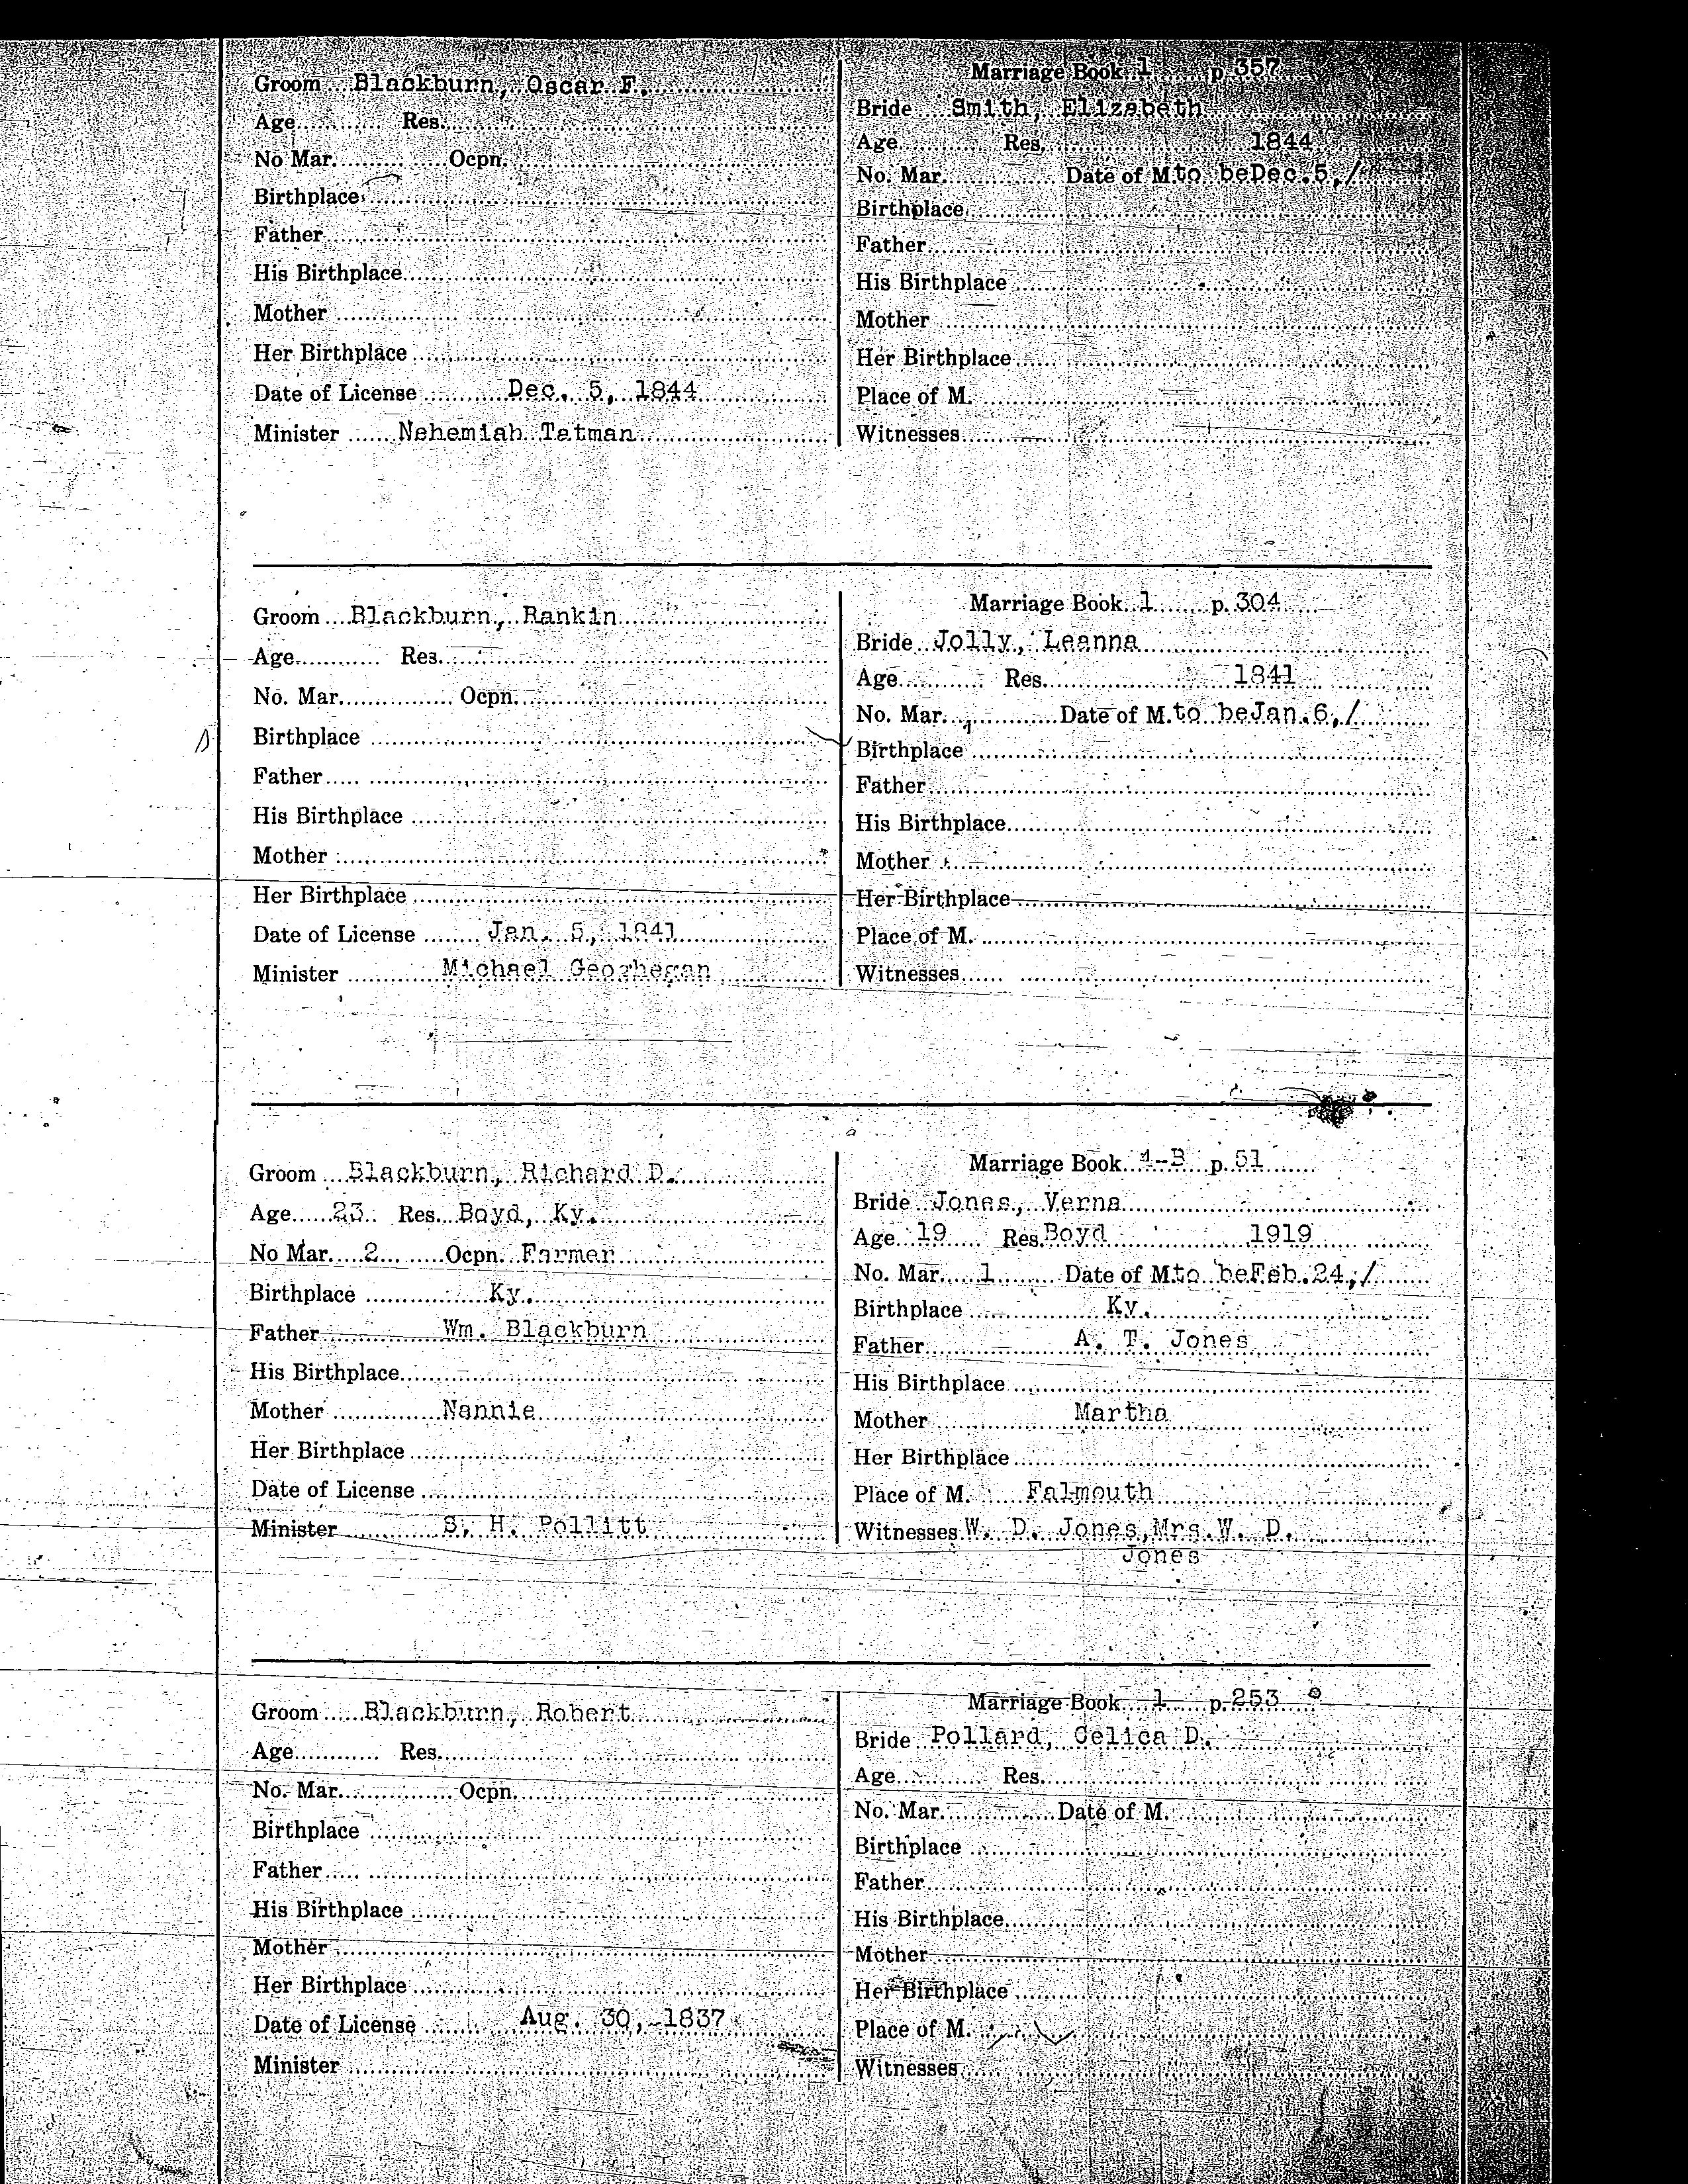 Groom Blackburn, Oscar F.
Age Res.
No Mar. Ocpn.
Birthplace
Father
His Birthplace
Mother
Her Birthplace
Date of License Dec. 5, 1844
Minister Nehemiah Tatman
Marriage Book 1 p 357
Bride Smith, Elizabeth
Age Res. 1844
No. Mar. Date of M. to be Dec. 5, /
Birthplace
Father
His Birthplace
Mother
Her Birthplace
Place of M.
Witnesses
Groom Blackburn, Rankin
Age Res.
No. Mar. Ocpn.
Birthplace
Father
His Birthplace
Mother
Her Birthplace
Date of License Jan. 5, 1841
Minister Michael Geoghegan
Marriage Book 1 p. 304
Bride Jolly, Leanna
Age Res. 1841
No. Mar. Date of M. to be Jan. 6, /
Birthplace
Father
His Birthplace
Mother
Her Birthplace
Place of M.
Witnesses
Groom Blackburn, Richard D.
Age 23 Res. Boyd, Ky.
No Mar. 2 Ocpn. Farmer
Birthplace Ky.
Father Wm. Blackburn
His Birthplace
Mother Nannie
Her Birthplace
Date of License
Minister S. H. Pollitt
Marriage Book 4-B p. 51
Bride Jones, Verna
Age 19 Res. Boyd 1919
No. Mar. 1 Date of M. to be Feb. 24, /
Birthplace Ky.
Father A. T. Jones
His Birthplace
Mother Martha
Her Birthplace
Place of M. Falmouth
Witnesses W. D. Jones, Mrs. W. D.
Jones
Groom Blackburn, Robert
Age Res.
No. Mar. Ocpn.
Birthplace
Father
His Birthplace
Mother
Her Birthplace
Date of License Aug. 30, 1837
Minister
Marriage Book 1 p. 253
Bride Pollard, Celica D.
Age Res.
No. Mar. Date of M.
Birthplace
Father
His Birthplace
Mother
Her Birthplace
Place of M.
Witnesses